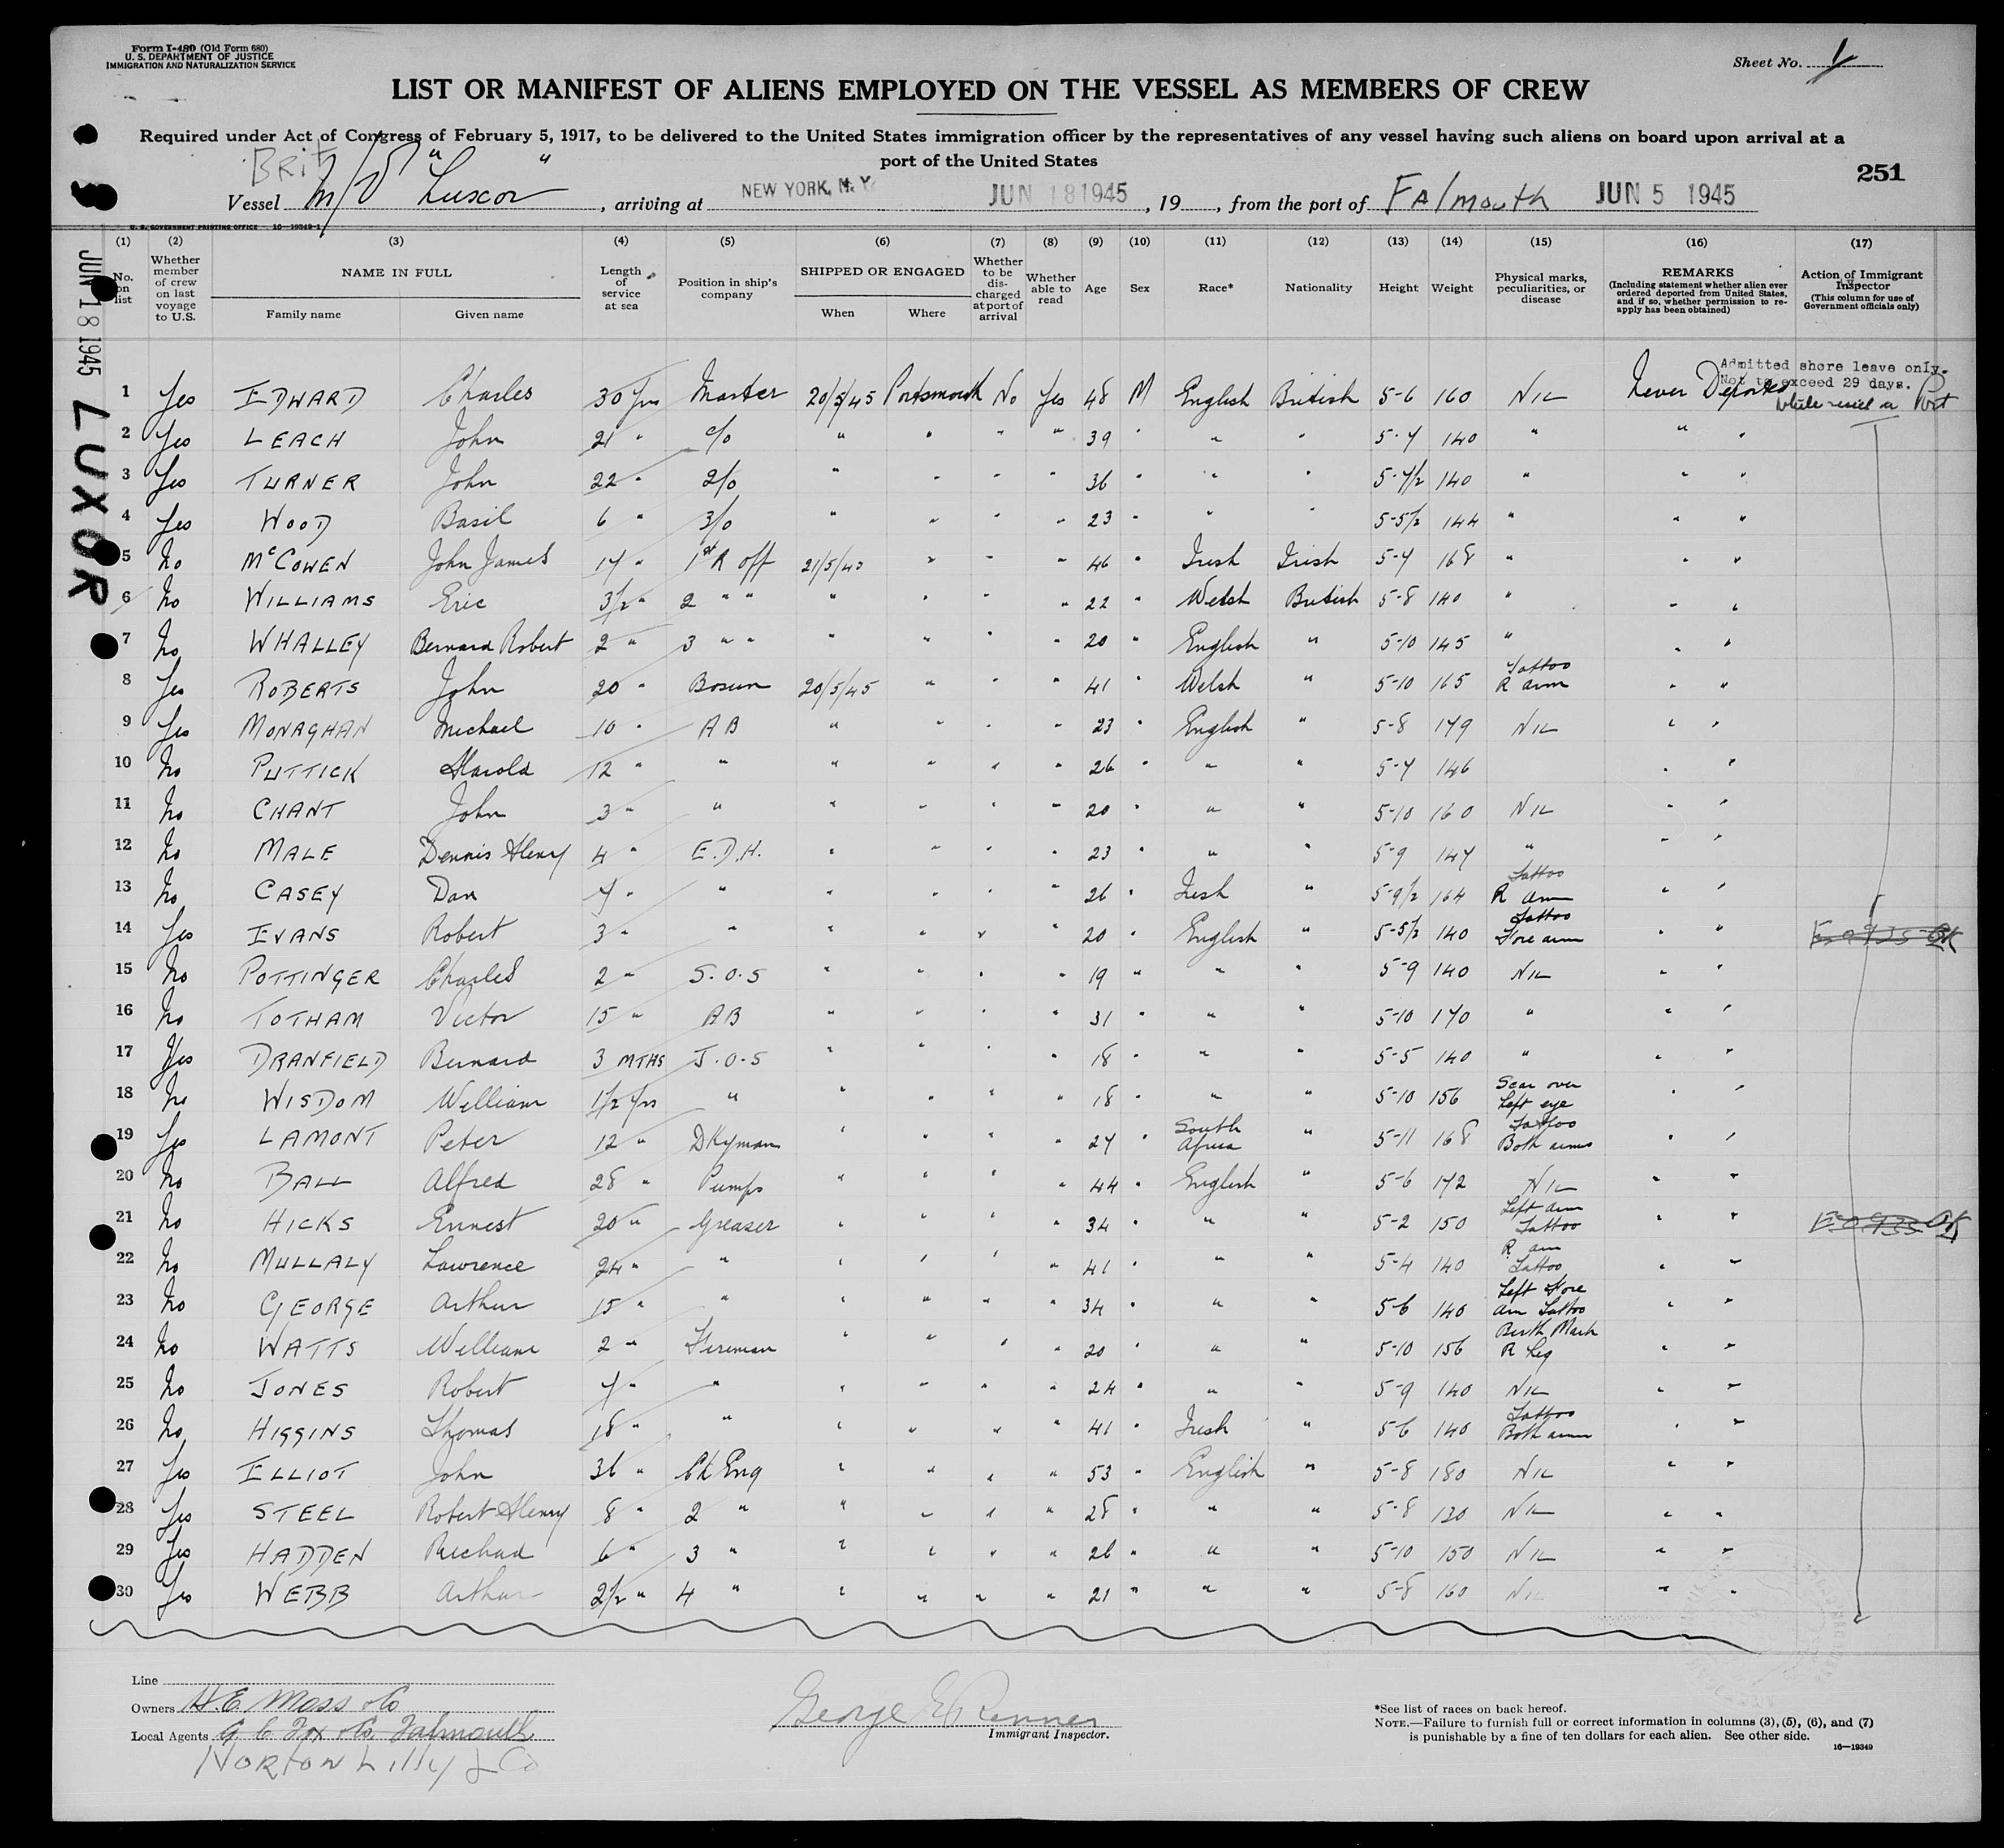 Form I-480 (Old Form 680)
U. S. DEPARTMENT OF JUSTICE
IMMIGRATION AND NATURALIZATION SERVICE
Sheet No. 1
LIST OR MANIFEST OF ALIENS EMPLOYED ON THE VESSEL AS MEMBERS OF CREW
Required under Act of Congress of February 5, 1917, to be delivered to the United States immigration officer by the representatives of any vessel having such aliens on board upon arrival at a
port of the United States
251
BRIT
Vessel M/V "Luxor", arriving at NEW YORK, N. Y. JUN 18 1945, 19, from the port of Falmouth JUN 5 1945
U. S. GOVERNMENT PRINTING OFFICE 16-19349-1
JUN 18 1945 LUXOR
(1) (2) (3) (4) (5) (6) (7) (8) (9) (10) (11) (12) (13) (14) (15) (16) (17)
No. on list
Whether member of crew on last voyage to U.S.
NAME IN FULL
Family name Given name
Length of service at sea
Position in ship's company
SHIPPED OR ENGAGED
When Where
Whether to be discharged at port of arrival
Whether able to read
Age Sex Race* Nationality Height Weight
Physical marks, peculiarities, or disease
REMARKS
(Including statement whether alien ever ordered deported from United States, and if so, whether permission to re-apply has been obtained)
Action of Immigrant Inspector
(This column for use of Government officials only)
Admitted shore leave only.
Not to exceed 29 days.
while vessel in Port
1 Yes EDWARD Charles 30 yrs Master 20/5/45 Portsmouth No Yes 48 M English British 5-6 160 NIL Never Deported
2 Yes LEACH John 21 " C/O " " " " 39 " " " 5-7 140 " " "
3 Yes TURNER John 22 " 2/O " " " " 36 " " " 5-7½ 140 " " "
4 Yes WOOD Basil 6 " 3/O " " " " 23 " " " 5-5½ 144 " " "
5 No McCOWEN John James 17 " 1st R off 21/5/45 " " " 46 " Irish Irish 5-7 168 " " "
6 No WILLIAMS Eric 3½ " 2 " " " " " " 22 " Welsh British 5-8 140 " " "
7 No WHALLEY Bernard Robert 2 " 3 " " " " " " 20 " English " 5-10 145 " " "
8 Yes ROBERTS John 20 " Bosun 20/5/45 " " " 41 " Welsh " 5-10 165 Tattoo R arm " "
9 Yes MONAGHAN Michael 10 " AB " " " " 23 English " 5-8 179 NIL " "
10 No PUTTICK Harold 12 " " " " " " 26 " " " 5-7 146 " "
11 No CHANT John 3 " " " " " " 20 " " " 5-10 160 NIL " "
12 No MALE Dennis Henry 4 " E.D.H. " " " " 23 " " " 5-9 147 " " "
13 No CASEY Dan 7 " " " " " " 26 " Irish " 5-9½ 164 Tattoo R arm " "
14 Yes EVANS Robert 3 " " " " " " 20 " English " 5-5½ 140 Tattoo Fore arm " "
15 No POTTINGER Charles 2 " S.O.S " " " " 19 " " " 5-9 140 NIL " "
16 No TOTHAM Victor 15 " AB " " " " 31 " " " 5-10 170 " " "
17 Yes DRANFIELD Bernard 3 MTHS J.O.S " " " " 18 " " " 5-5 140 " " "
18 No WISDOM William 1½ yrs " " " " " 18 " " " 5-10 156 Scar over Left eye " "
19 Yes LAMONT Peter 12 " DKyman " " " " 27 " South Africa " 5-11 168 Tattoo Both arms " "
20 No BALL Alfred 28 " Pumps " " " " 44 " English " 5-6 172 NIL " "
21 No HICKS Ernest 20 " Greaser " " " " 34 " " " 5-2 150 Left arm Tattoo " "
22 No MULLALY Lawrence 24 " " " " " " 41 " " " 5-4 140 R arm Tattoo " "
23 No GEORGE Arthur 15 " " " " " " 34 " " " 5-6 140 Left Fore arm Tattoo " "
24 No WATTS William 2 " Fireman " " " " 20 " " " 5-10 156 Birth Mark R Leg " "
25 No JONES Robert 7 " " " " " " 24 " " " 5-9 140 NIL " "
26 No HIGGINS Thomas 18 " " " " " " 41 " Irish " 5-6 140 Tattoo Both arms " "
27 Yes ELLIOT John 36 " Ch Eng " " " " 53 " English " 5-8 180 NIL " "
28 Yes STEEL Robert Henry 8 " 2 " " " " " 28 " " " 5-8 130 NIL " "
29 Yes HADDEN Richard 6 " 3 " " " " " 26 " " " 5-10 150 NIL " "
30 Yes WEBB Arthur 2½ " 4 " " " " " 21 " " " 5-8 160 NIL " "
Line
Owners H.E. Moss & Co
Local Agents G C Fox & Co, Falmouth
NORTON LILLY & Co
George E Renner
Immigrant Inspector.
*See list of races on back hereof.
NOTE.—Failure to furnish full or correct information in columns (3), (5), (6), and (7)
is punishable by a fine of ten dollars for each alien. See other side.
16—19349